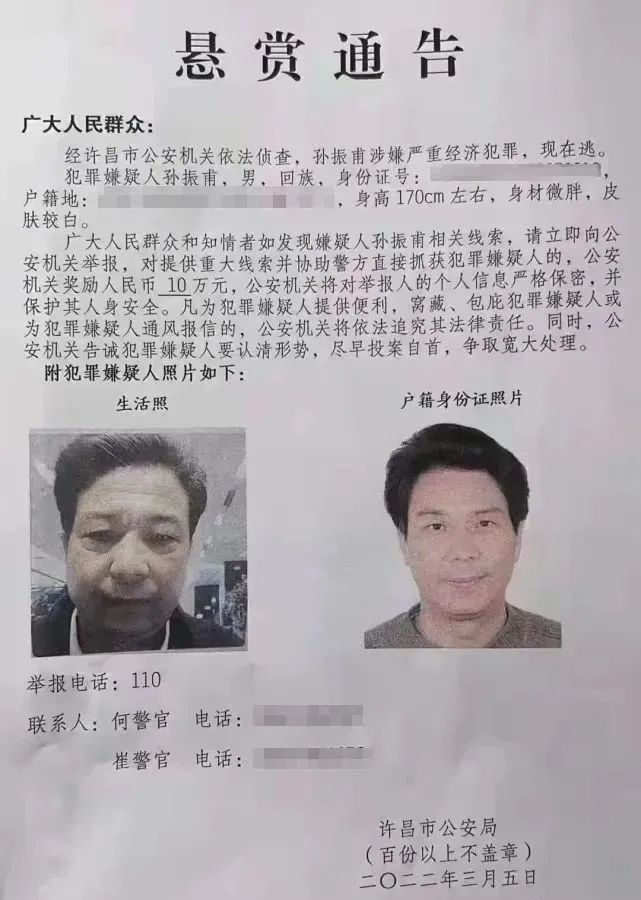 悬赏通告
广大人民群众：
经许昌市公安机关依法侦查，孙振甫涉嫌严重经济犯罪，现在逃。
犯罪嫌疑人孙振甫，男，回族，身份证号：
，
户籍地：，身高170cm左右，身材微胖，皮
肤较白。
广大人民群众和知情者如发现嫌疑人孙振甫相关线索，请立即向公
安机关举报，对提供重大线索并协助警方直接抓获犯罪嫌疑人的，公安
机关奖励人民币 10 万元，公安机关将对举报人的个人信息严格保密，并
保护其人身安全。凡为犯罪嫌疑人提供便利，窝藏、包庇犯罪嫌疑人或
为犯罪嫌疑人通风报信的，公安机关将依法追究其法律责任。同时，公
安机关告诫犯罪嫌疑人要认清形势，尽早投案自首，争取宽大处理。
附犯罪嫌疑人照片如下：
生活照 户籍身份证照片
举报电话：110
联系人：何警官 电话：
崔警官 电话：
许昌市公安局
（百份以上不盖章）
二〇二二年三月五日